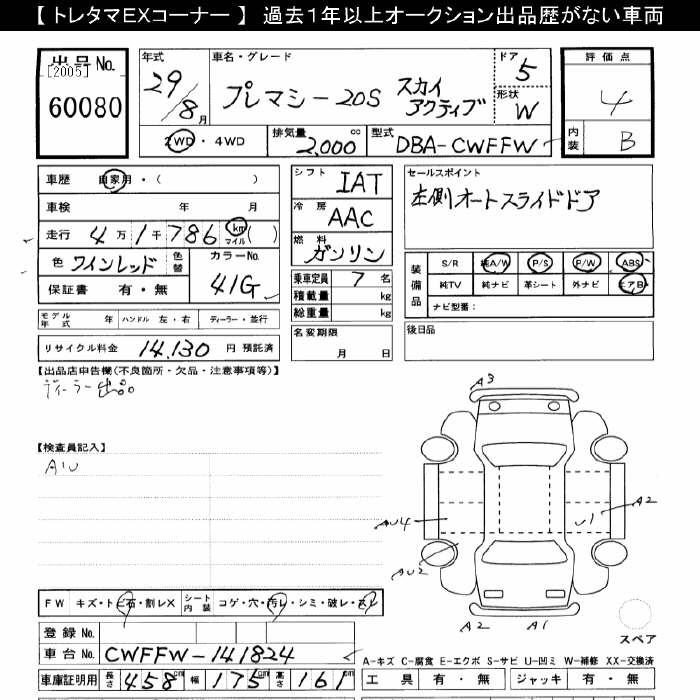 【 トレタマEXコーナー 】 過去1年以上オークション出品歴がない車両
出品号No.
[2005]
60080
年式
29/8月
車名・グレード
プレマシー 20S スカイアクティブ
ドア 5
形状 W
評価点
4
内装 B
2WD・4WD
排気量 2,000 cc
型式 DBA-CWFFW
車歴 自家用・( )
車検 年 月
走行 4万1千786 km マイル ( )
色 ワインレッド 色替
カラーNo. 41G
保証書 有・無
モデル年式 年 ハンドル 左・右 ディーラー・並行
リサイクル料金 14,130 円 預託済
シフト IAT
冷房 AAC
燃料 ガソリン
乗車定員 7 名
積載量 kg
総重量 kg
名変期限
月 日
セールスポイント
左側オートスライドドア
装備品
S/R 純A/W P/S P/W ABS
純TV 純ナビ 革シート 外ナビ エアB
ナビ型番：
後日品
【出品店申告欄(不良箇所・欠品・注意事項等)】
ディーラー出品
【検査員記入】
AU
A3
AU4
U1
A2
AU2
A2
A1
スペア
FW キズ・トビ石・割レX シート内装 コゲ・穴・汚レ・シミ・破レ・スレ
登録 No.
車台 No. CWFFW-141824
A-キズ C-腐食 E-エクボ S-サビ U-凹ミ W-補修 XX-交換済
車庫証明用 長さ 458cm 幅 175cm 高さ 161cm
工具 有・無 ジャッキ 有・無